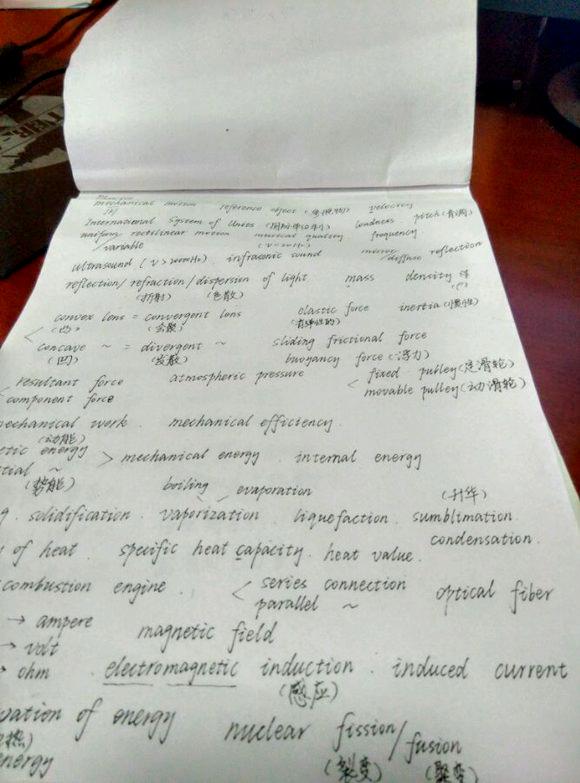 mechanical motion reference object (参照物) velocity
International System of Unites (国际单位制) loudness pitch (音调)
uniform rectilinear motion musical quality frequency
/variable (ν>20000Hz)
ultrasound (ν>20000Hz). infrasonic sound mirror/diffuse reflection
reflection/refraction/dispersion of light mass density
(折射) (色散)
convex lens = convergent lens elastic force inertia (惯性)
(凸) (会聚) (有弹性的)
< concave ~ = divergent ~ sliding frictional force
(凹) (发散) buoyancy force (浮力)
< resultant force atmospheric pressure < fixed pulley (定滑轮)
component force movable pulley (动滑轮)
mechanical work. mechanical efficiency.
(动能)
etic energy > mechanical energy. internal energy
tial ~
(势能) boiling evaporation (升华)
g. solidification. vaporization. liquefaction. sumblimation.
condensation.
y of heat. specific heat capacity. heat value.
combustion engine. < series connection optical fiber
parallel ~
→ ampere magnetic field
→ volt
→ ohm. electromagnetic induction. induced current
(感应)
vation of energy nuclear fission/fusion
热) (裂变) (聚变)
energy